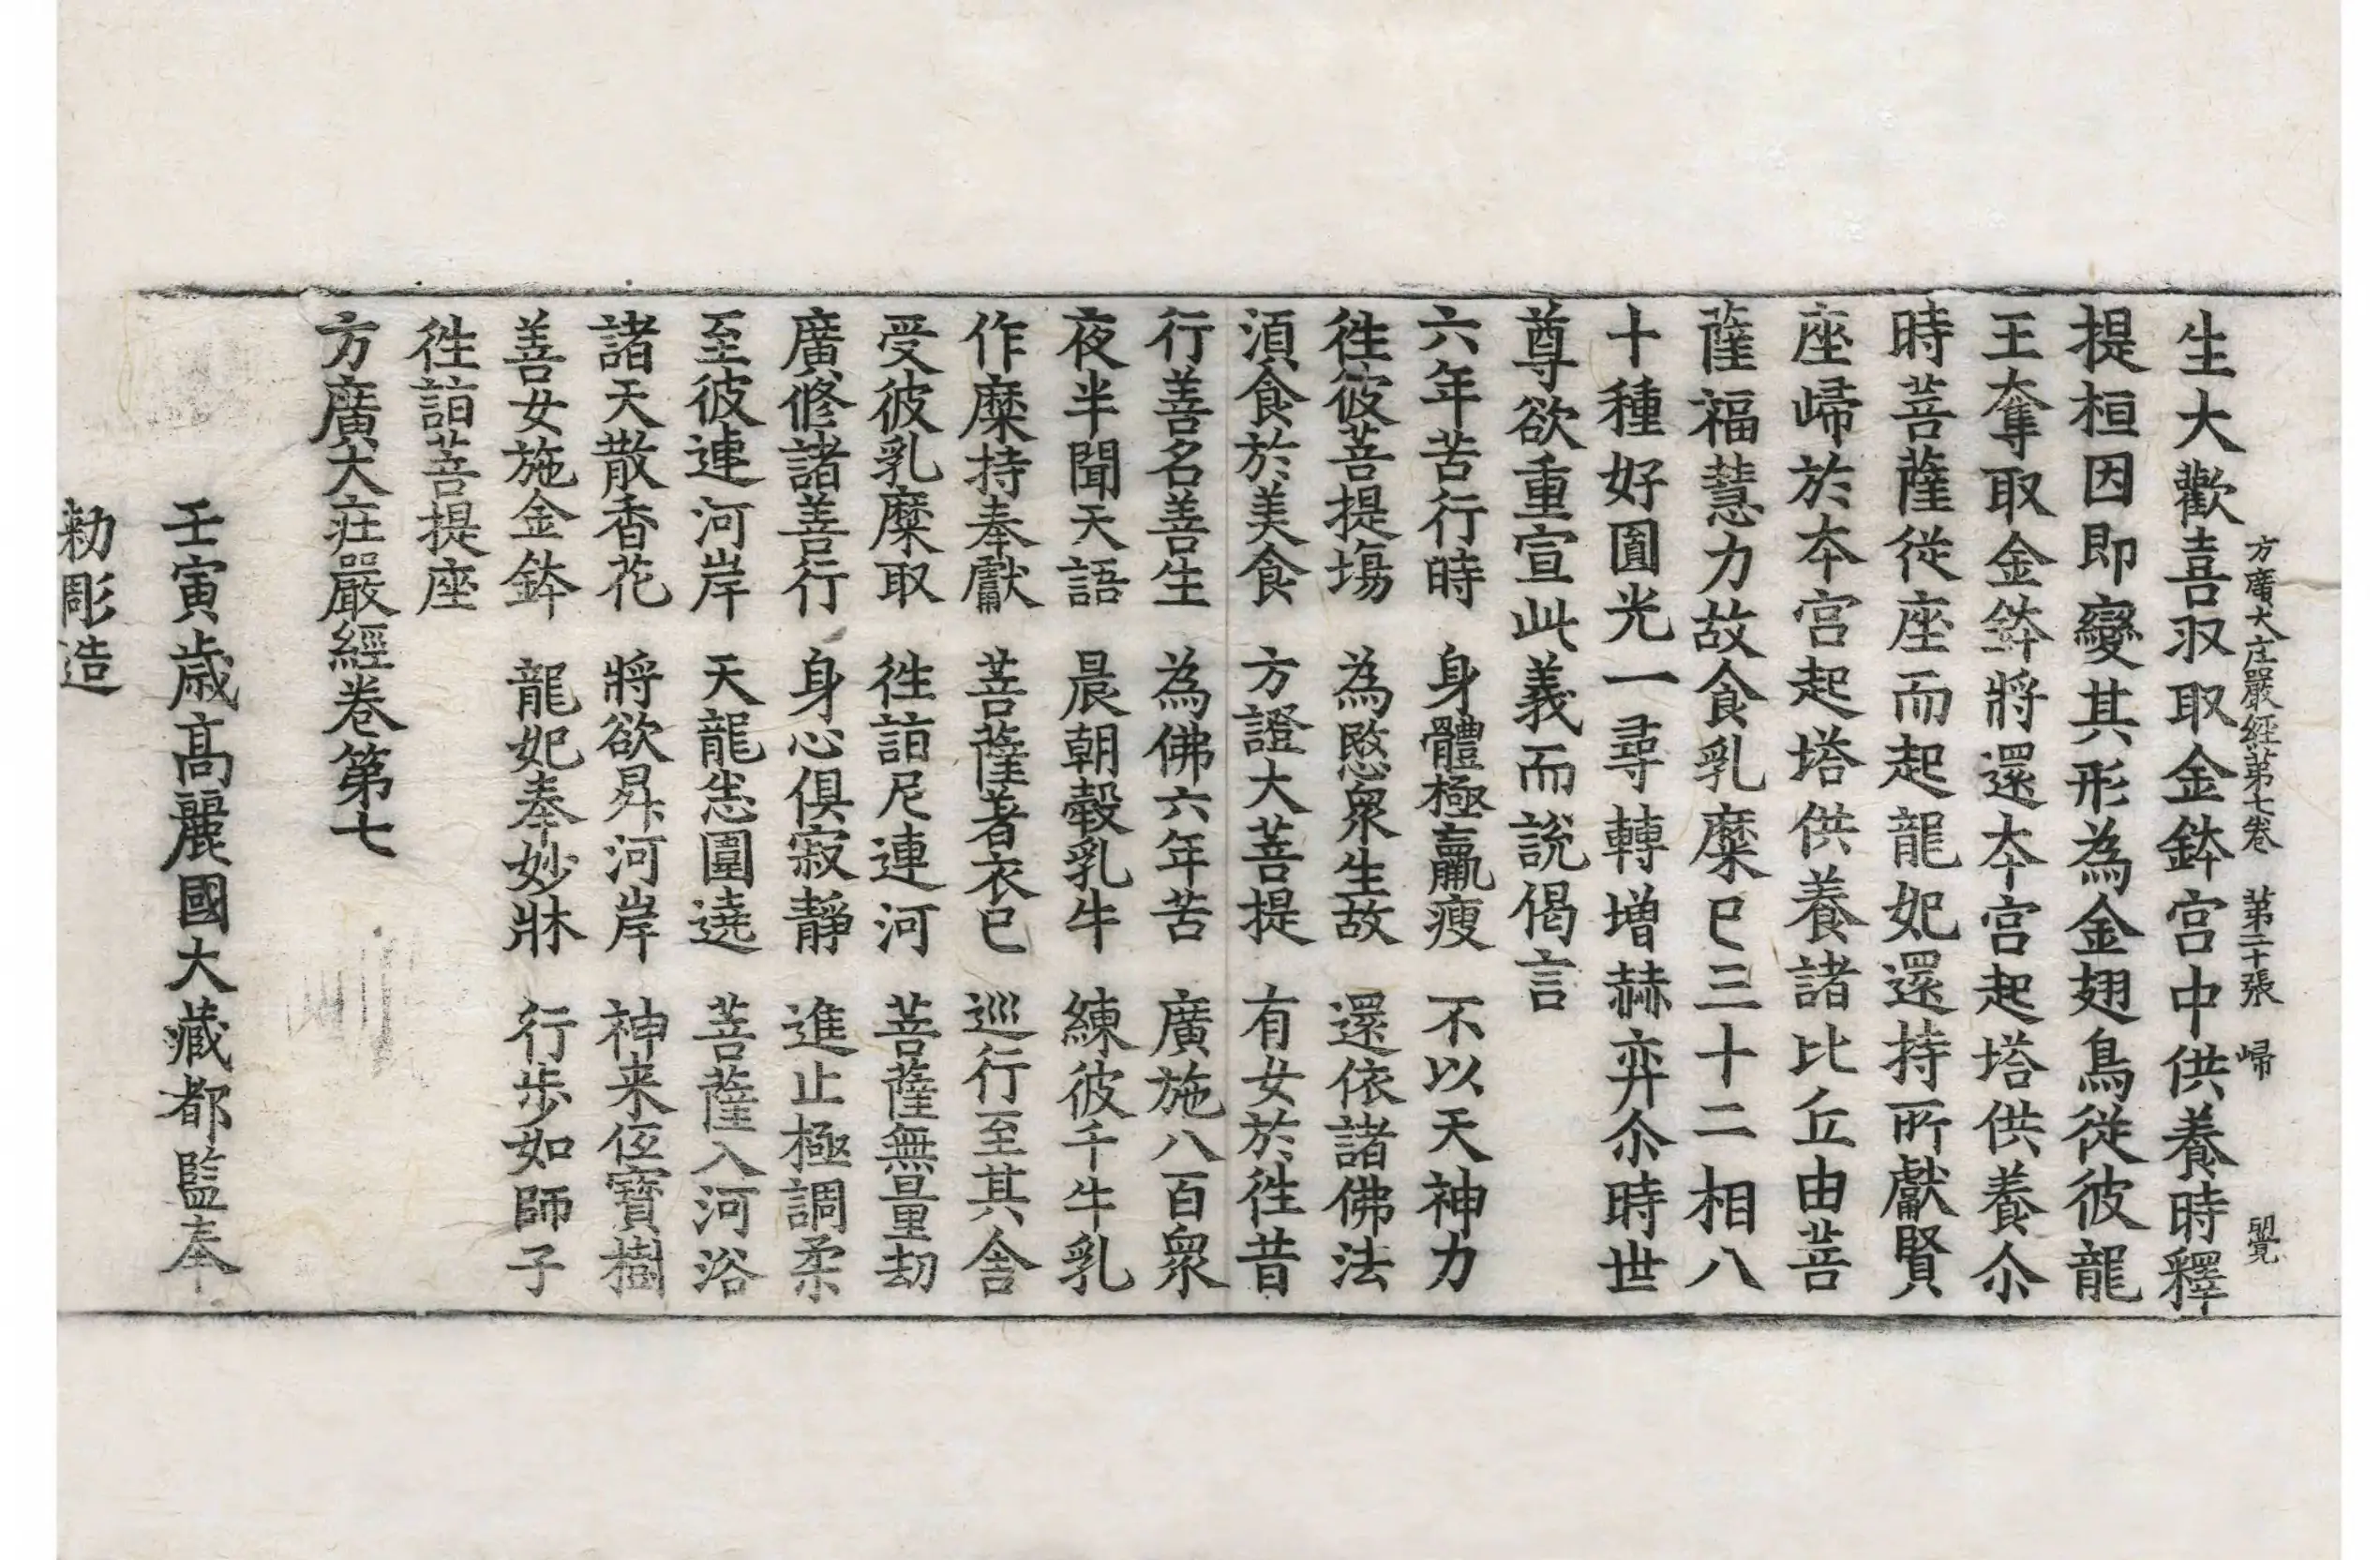 方廣大庄嚴經第七卷 第二十張 㱕 覺
生大歡喜収取金鉢宮中供養時釋
提桓因即變其形為金翅鳥從彼龍
王奪取金鉢將還夲宮起塔供養尒
時菩薩從座而起龍妃還持所獻賢
座㱕於夲宮起塔供養諸比丘由菩
薩福慧力故食乳糜已三十二相八
十種好圓光一尋轉增赫弈尒時世
尊欲重宣此義而說偈言
六年苦行時 身體極羸瘦 不以天神力
徃彼菩提場 為愍衆生故 還依諸佛法
湏食於美食 方證大菩提 有女於徃昔
行善名善生 為佛六年苦 廣施八百衆
夜半聞天語 晨朝𣫍乳牛 練彼千牛乳
作糜持奉獻 菩薩著衣已 巡行至其舍
受彼乳糜取 徃詣尼連河 菩薩無量劫
廣修諸善行 身心俱寂靜 進止極調柔
至彼連河岸 天龍悉圍遶 菩薩入河浴
諸天散香花 將欲昇河岸 神来低寶樹
善女施金鉢 龍妃奉妙牀 行步如師子
徃詣菩提座
方廣大庄嚴經卷第七
壬寅歳髙麗國大藏都監奉
勑彫造